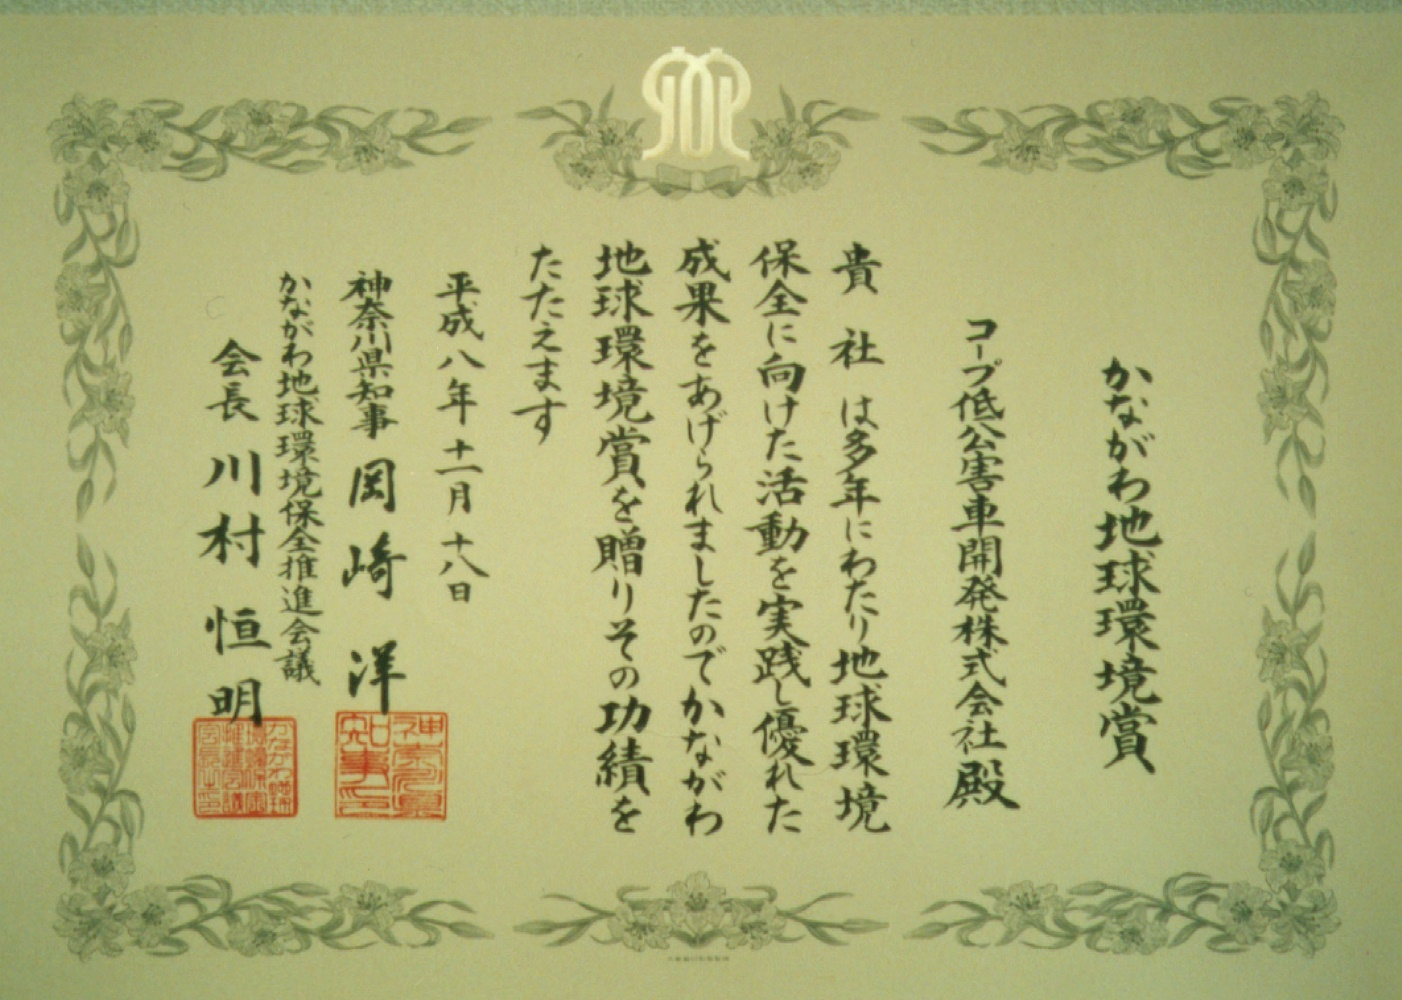 かながわ地球環境賞
コープ低公害車開発株式会社殿
貴社は多年にわたり地球環境
保全に向けた活動を実践し優れた
成果をあげられましたのでかながわ
地球環境賞を贈りその功績を
たたえます
平成八年十一月十八日
神奈川県知事 岡崎洋
かながわ地球環境保全推進会議
会長 川村恒明
神奈川県
知事之印